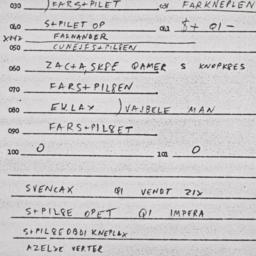 030 ) FARS+PILET 031 FARKNEPLEN
040 S+PILET OP 041 $+ 01-
FAENANDER
050 CUNEJES+PILSEN
060 ZAC+A,SKSE QAMER S KNOPKSES
070 FARS+PILSEN
080 EVLAX ) VAJBELE MAN
090 FARS+PILSET
100 0 101 0
SVENCAX QI VENDT ZIX
S+PILSE OPET QI IMPERA
S+PILSEDBDI KNEPLAX
AZELSE VERTER